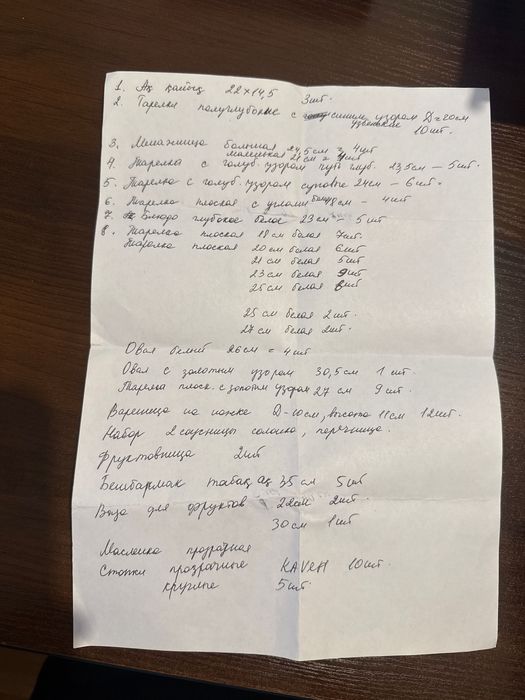 1. Ақ қайық 22×14,5 3шт.
2. Тарелки полуглубокие с синим узором D=20см
узенькие 10шт.
3. Менажница большая 24,5см = 4шт
маленькая 21см = 4шт
4. Тарелка с голуб. узором глуб. 23,5см – 5шт.
5. Тарелка с голуб. узором суповые 24см – 6шт.
6. Тарелка плоская с углами – 4шт
7. Блюдо глубокое белое 23см – 5шт
8. Тарелка плоская 18см белая 7шт.
Тарелка плоская 20см белая 6шт
21см белая 5шт
23см белая 9шт
25см белая 8шт
25см белая 2шт.
27см белая 2шт.
Овал белый 26см = 4шт
Овал с золотым узором 30,5см 1шт.
Тарелка плоск. с золотым узором 27см 9шт.
Вареница на ножке D-10см, высота 11см 12шт.
Набор 2 соусницы солонка, перечница.
Фруктовница 2шт
Бешбармак табақ ақ 35см 5шт
Ваза для фруктов 22см 2шт.
30см 1шт
Масленка прозрачная
Стопки прозрачные 10шт.
круглые 5шт.